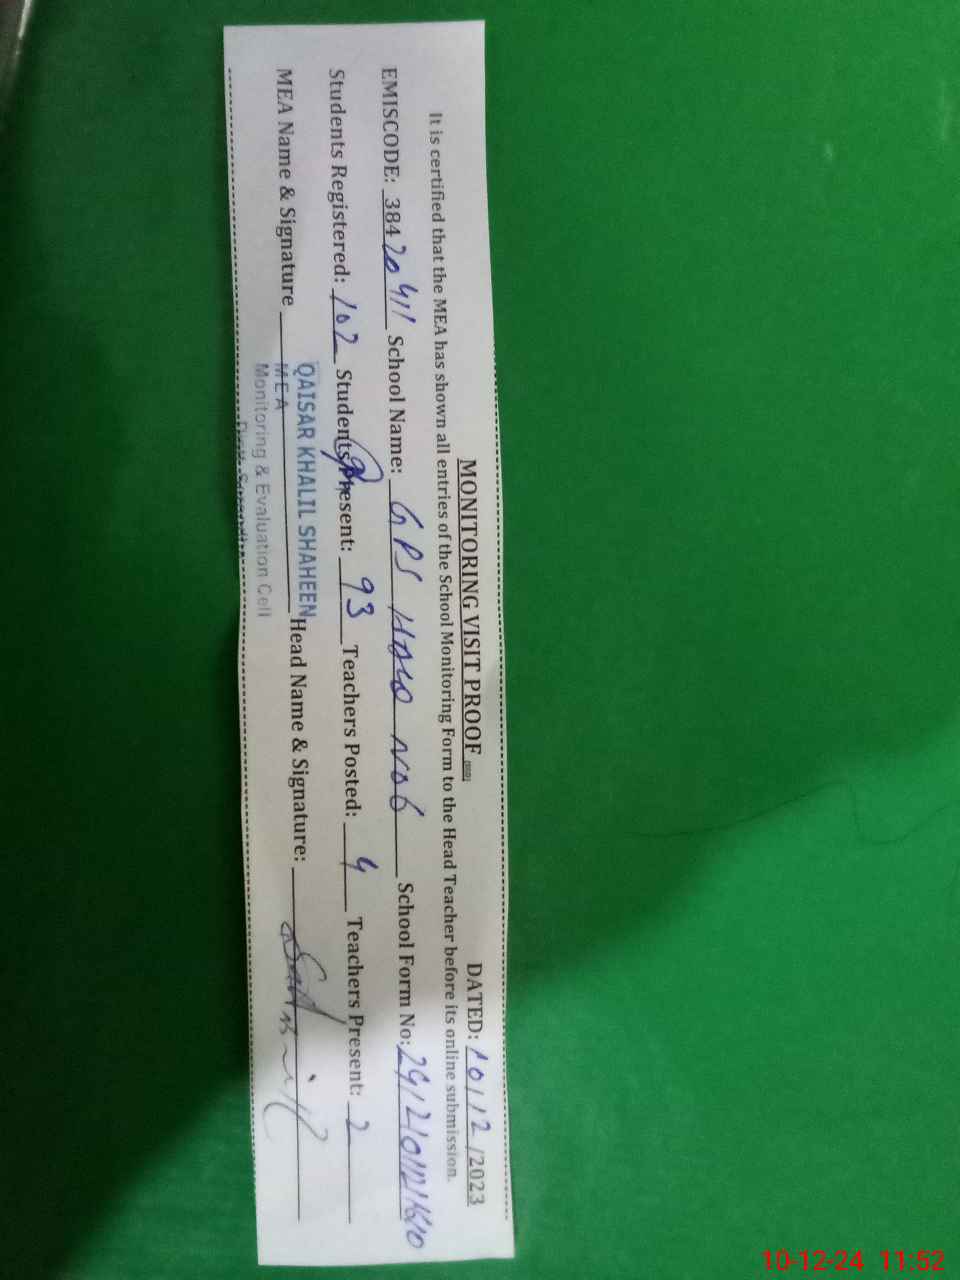 MONITORING VISIT PROOF DATED: 10/12/2023
It is certified that the MEA has shown all entries of the School Monitoring Form to the Head Teacher before its online submission.
EMISCODE: 38420411 School Name: GPS No 6 School Form No:
Students Registered: 102 Students Present: 93 Teachers Posted: 4 Teachers Present: 2
MEA Name & Signature Head Name & Signature:
QAISAR KHALIL SHAHEEN
MEA
Monitoring & Evaluation Cell
10-12-24 11:52